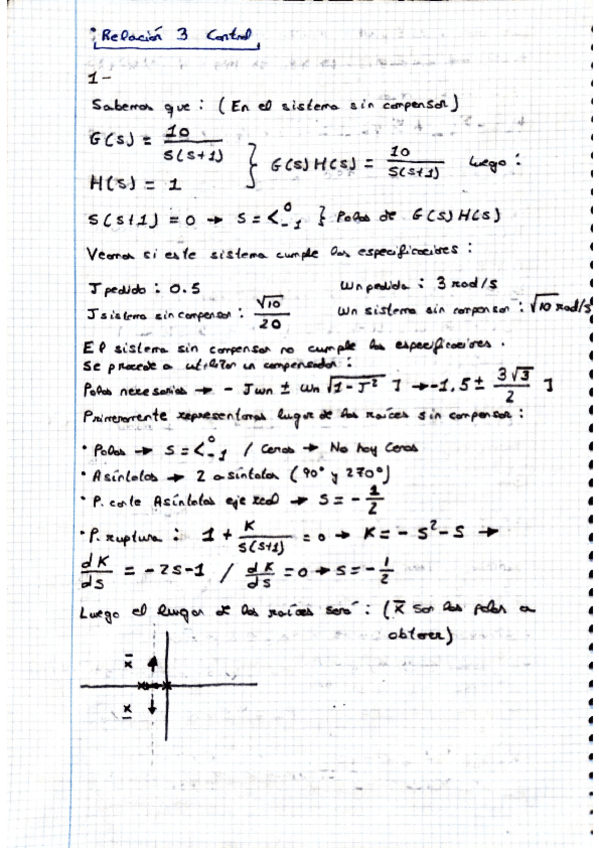 Relación 3 Control
1-
Sabemos que : (En el sistema sin compensar)
G(s) = 10 / s(s+1)
H(s) = 1 } G(s)H(s) = 10 / s(s+1) Luego :
s(s+1) = 0 → s = < 0 -1 } Polos de G(s)H(s)
Veamos si este sistema cumple las especificaciones :
J pedido : 0.5 Wn pedida : 3 rad/s
J sistema sin compensar : √10 / 20 Wn sistema sin compensar : √10 rad/s
El sistema sin compensar no cumple las especificaciones.
Se procede a utilizar un compensador :
Polos necesarios → - J wn ± wn √1-J² J → -1,5 ± 3√3 / 2 J
Primeramente representamos lugar de las raíces sin compensar :
· Polos → s = < 0 -1 / Ceros → No hay Ceros
· Asíntotas → 2 asíntotas (90° y 270°)
· P. corte Asíntotas eje real → s = - 1/2
· P. ruptura : 1 + K / s(s+1) = 0 → K = - s² - s →
dK/ds = -2s-1 / dK/ds = 0 → s = - 1/2
Luego el lugar de las raíces será : (x̄ son los polos a
obtener)